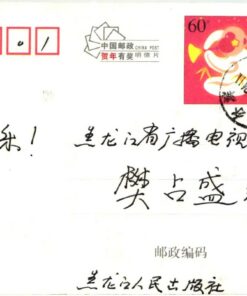 01
中国邮政
CHINA POST
贺年有奖
明信片
60
乐！
黑龙江省广播电视
樊占盛
邮政编码
黑龙江人民出版社